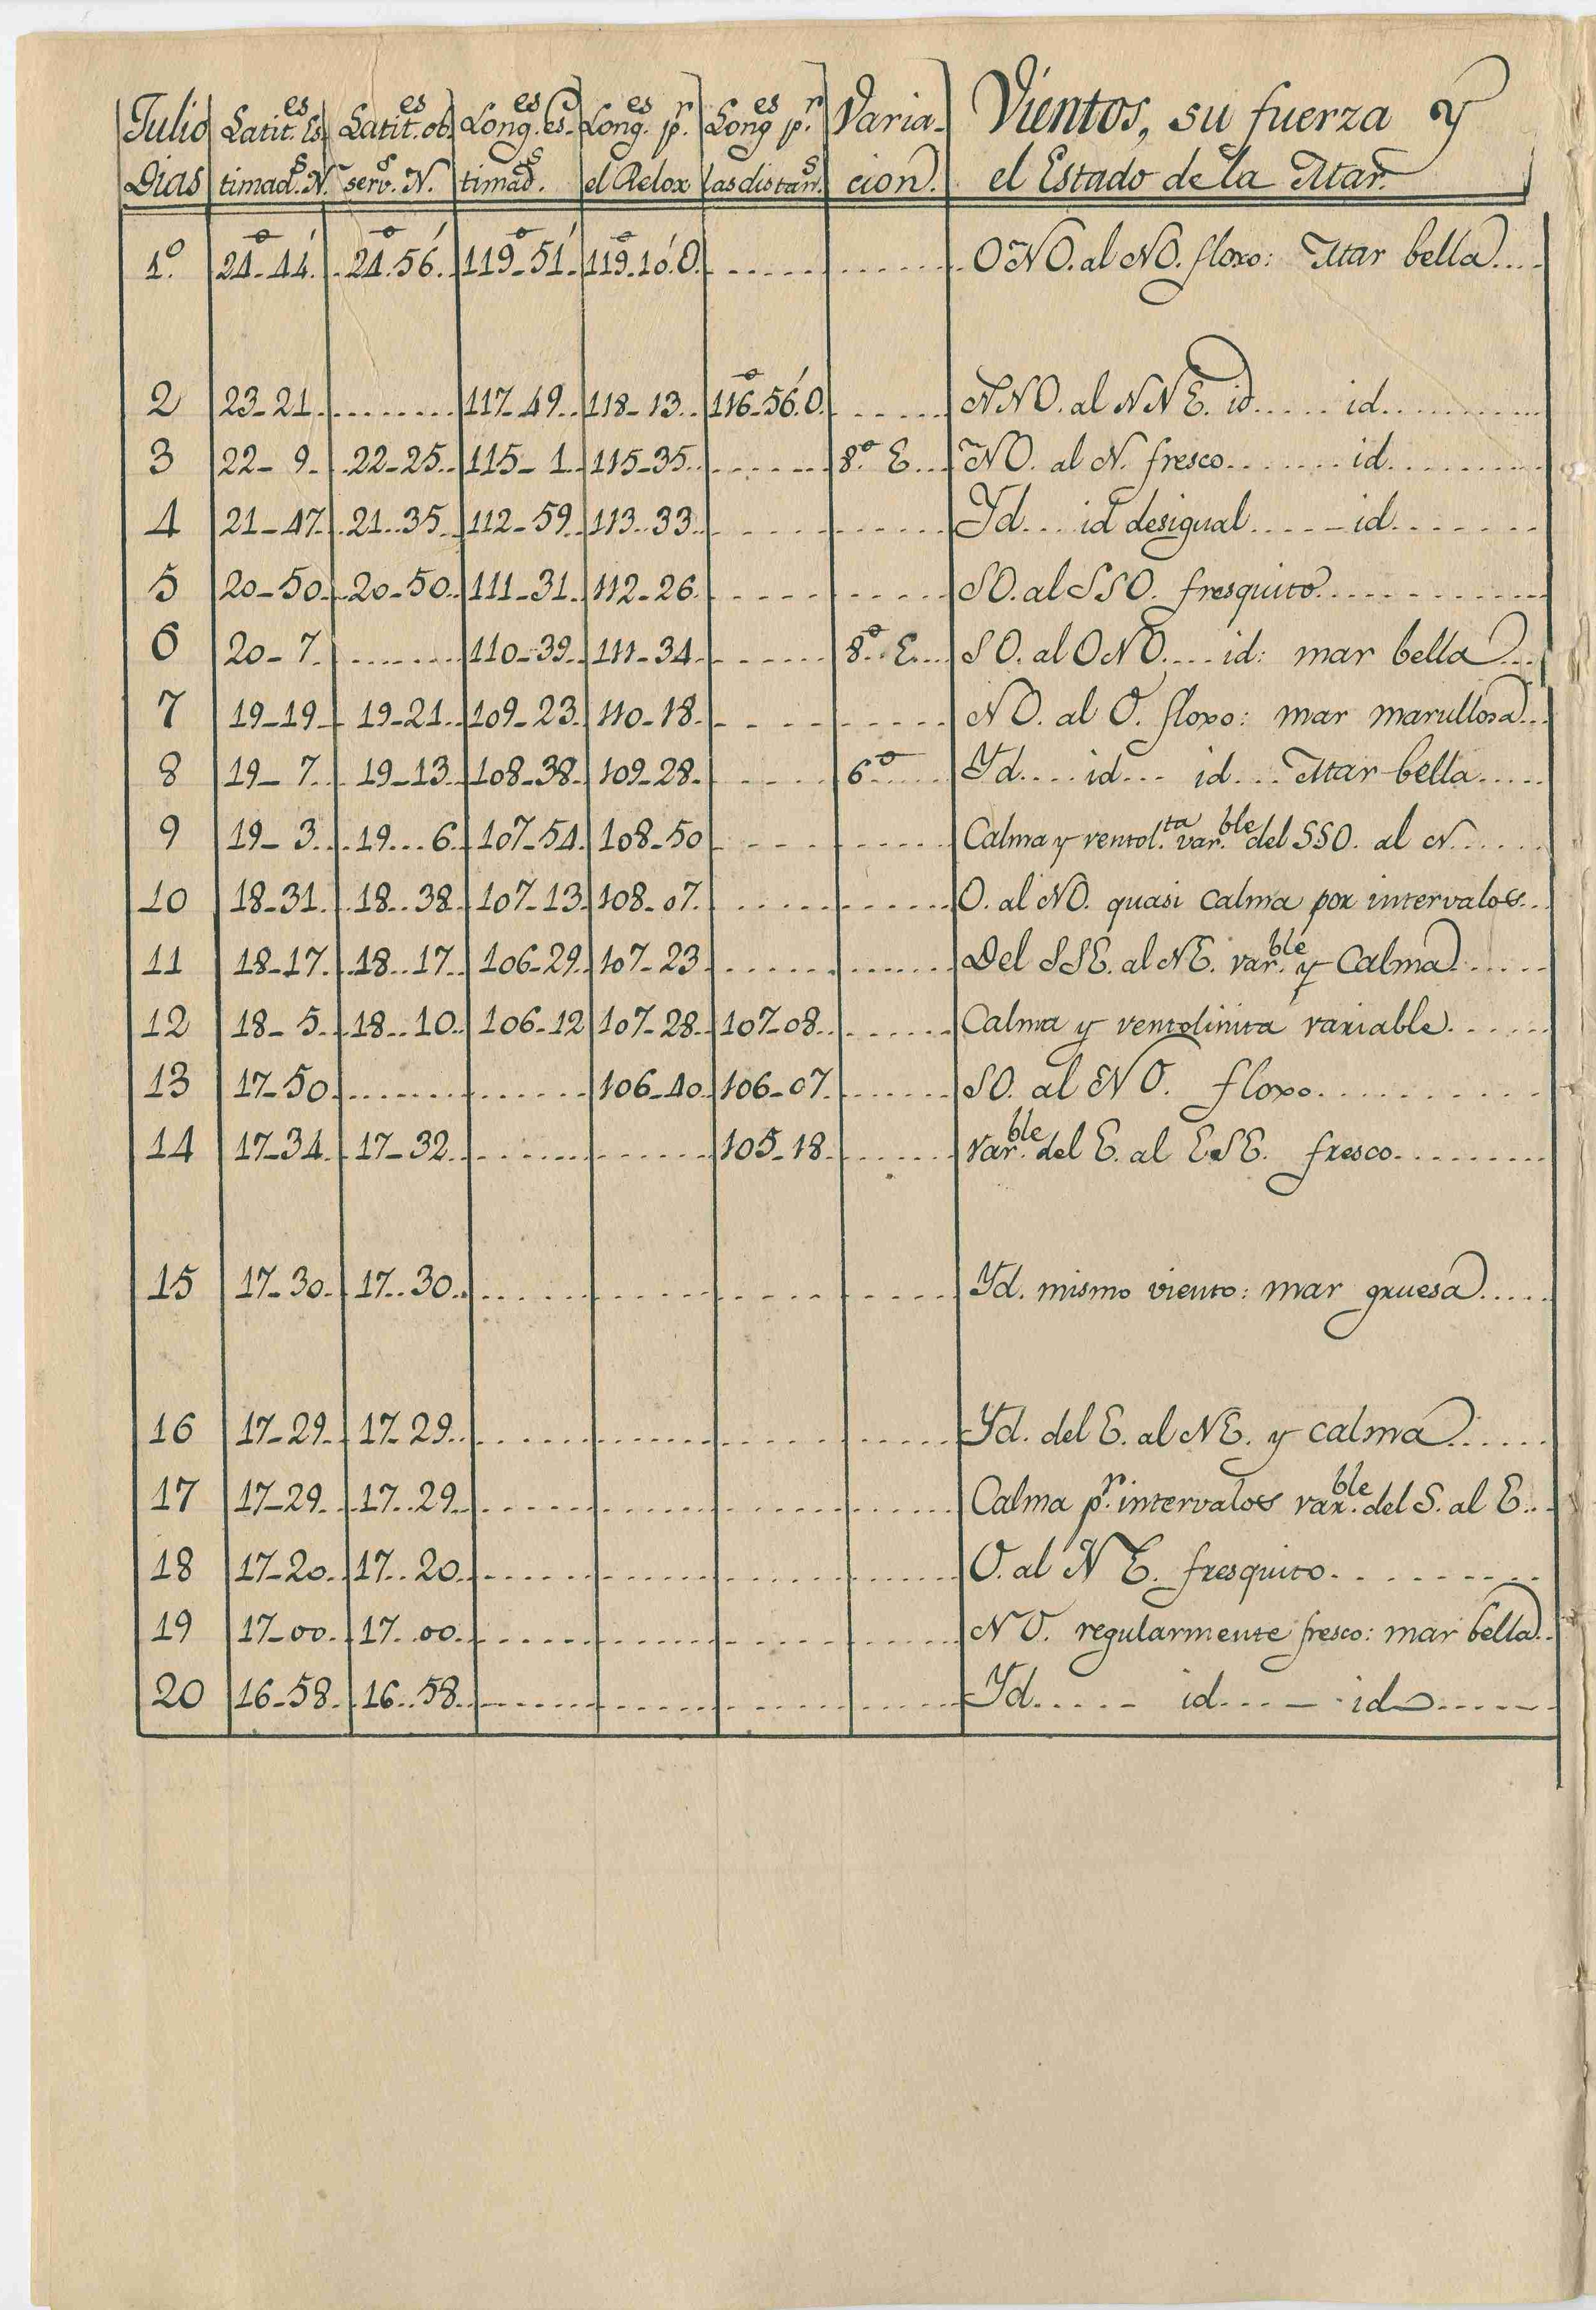 Julio Latit.es Es Latit.es ob. Long.es es- Long.es p.r Long.es p.r Varia- Vientos, su fuerza y
Dias timad.s N. serv.s N. timad.s el Relox las distan.s cion. el Estado de la Mar.
1.º 24°-44´ 24°.56´ 119°-51´ 119°.10´.O. ONO. al NO. floxo: Mar bella
2 23-21 117-49 118-13 116°-56´.O. NNO. al NNE. id id
3 22-9 22-25 115-1 115-35 8.° E. NO. al N. fresco id
4 21-47 21..35 112-59 113..33 Yd id desigual id
5 20-50 20-50 111-31 112-26 SO. al SSO. fresquito
6 20-7 110-39 111-34 8.° E. SO. al ONO. id: mar bella
7 19-19 19-21 109-23 110-18 NO. al O. floxo: mar marullosa
8 19-7 19-13 108-38 109-28 6° Yd id id Mar bella
9 19-3 19...6 107-54 108-50 Calma y ventol.ta var.ble del SSO. al N.
10 18-31 18..38 107-13 108-07 O. al NO. quasi calma por intervalos
11 18-17 18..17 106-29 107-23 Del SSE. al NE. var.ble y Calma
12 18-5 18..10 106-12 107-28 107-08 Calma y ventolinita variable
13 17-50 106-40 106-07 SO. al NO. floxo
14 17-34 17-32 105-18 Var.ble del E. al ESE. fresco
15 17-30 17..30 Yd. mismo viento: mar gruesa
16 17-29 17-29 Yd. del E. al NE. y calma
17 17-29 17..29 Calma p.r intervalos var.ble del S. al E.
18 17-20 17..20 O. al NE. fresquito
19 17-00 17..00 NO. regularmente fresco: mar bella
20 16-58 16..58 Yd id id